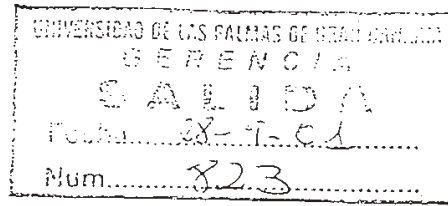 UNIVERSIDAD DE LAS PALMAS DE GRAN CANARIA
GERENCIA
SALIDA
Fecha
Num. 823